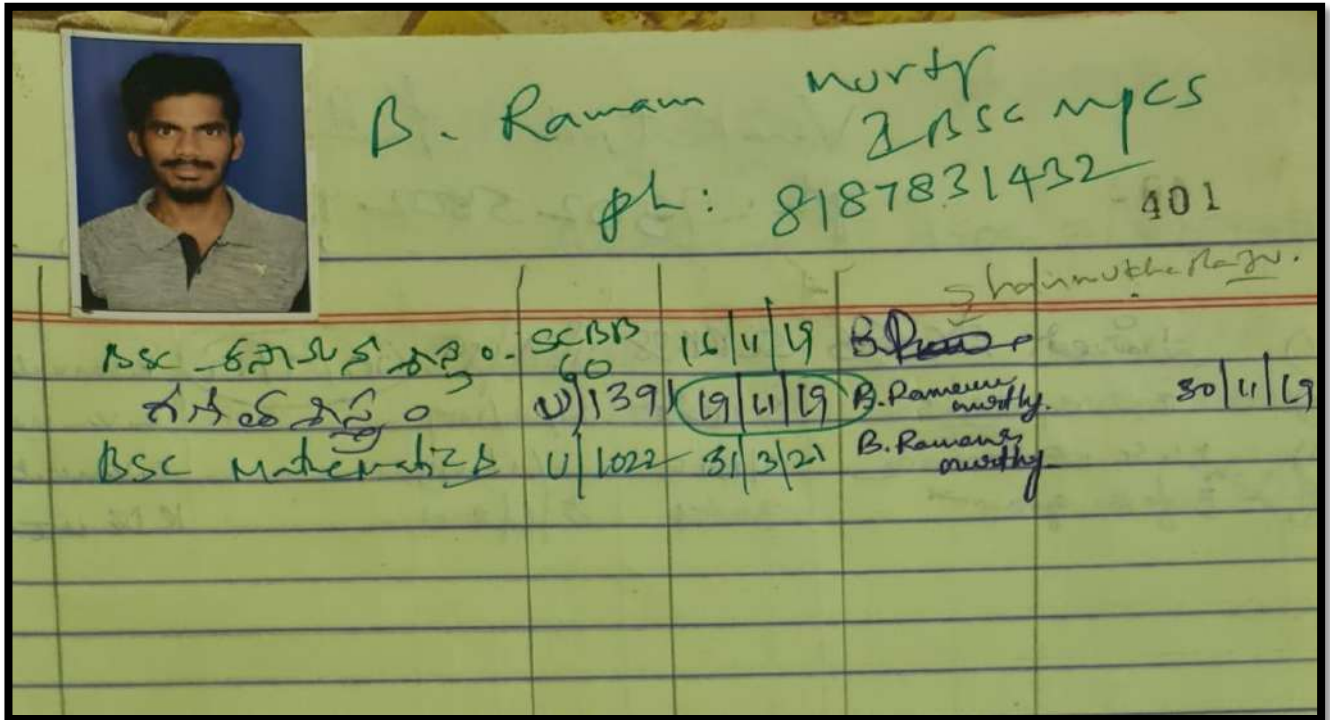 B. Ramana murty
I BSC MPCS
ph: 8187831432
401
Shanmukha Raju.
BSC రసాయన శాస్త్రం. SCBB 60 16/11/19
గణిత శాస్త్రం U/1391 19/11/19 B. Ramana murthy. 30/11/19
BSC Mathematics U/1022 31/3/21 B. Ramana murthy